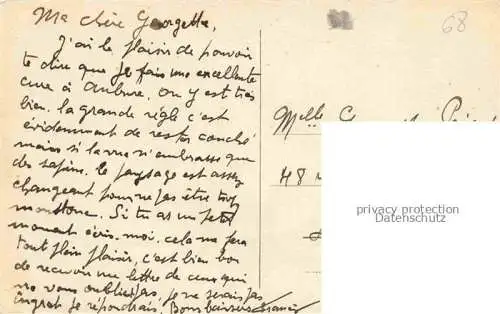 Ma chère Georgette,
J'ai le plaisir de pouvoir
te dire que je fais une excellente
cure à Aubure. On y est très
bien. la grande règle c'est
évidemment de rester couché
mais si la vue n'embrasse que
des sapins. le paysage est assez
changeant pour ne pas être trop
monotone. Si tu as un petit
moment écris-moi. cela me fera
tout plein plaisir, c'est bien bon
de recevoir une lettre de ceux qui
ne vous oublient pas, je ne serais pas
ingrat je répondrais. Bons baisers
68
Melle
48
privacy protection
Datenschutz.